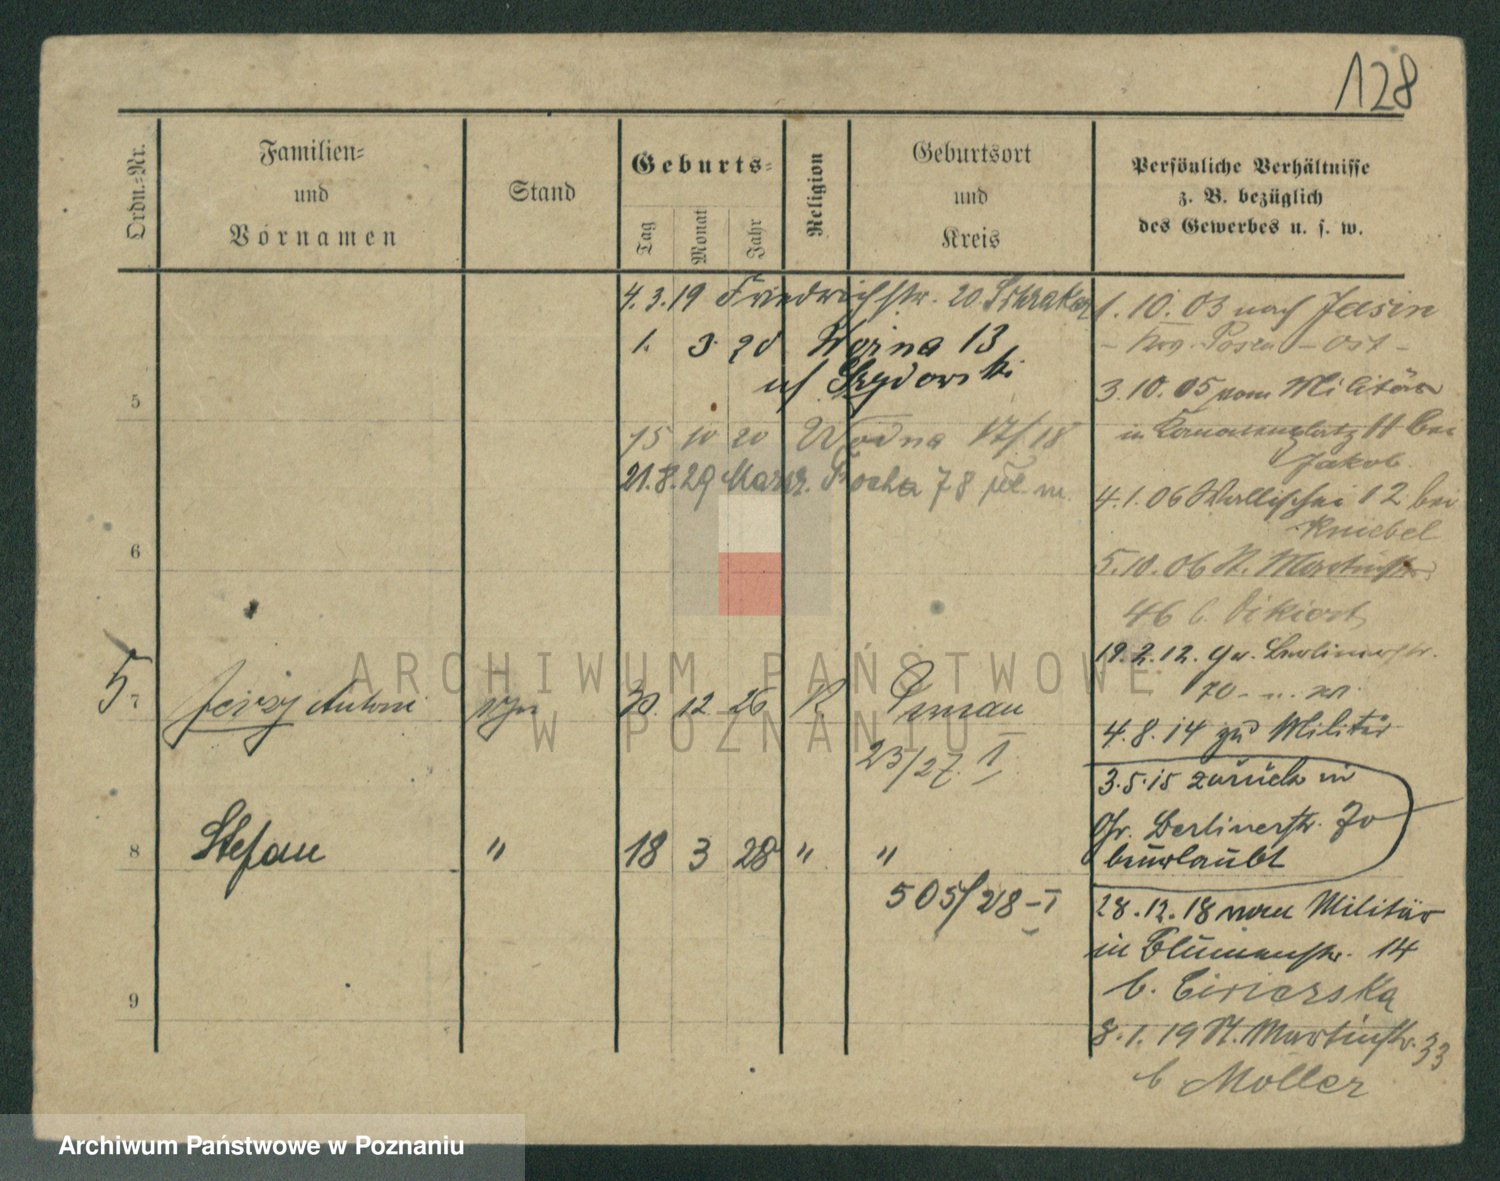 128
Ordn.-Nr.
Familien-
und
Vornamen
Stand
Geburts-
Tag
Monat
Jahr
Religion
Geburtsort
und
Kreis
Persönliche Verhältnisse
z. B. bezüglich
des Gewerbes u. s. w.
4.3.19 Friedrichstr. 20
1. 3. 20 Woźna 13
Szydowski
15 10 20 Wodna 17/18
21.8.29 Marsz. Focha 78
5
6
5
7 Jerzy Antoni 30 12 26 K Poznań
23/27. I
8 Stefan " 18 3 28 " "
505/28-I
9
1.10.03 nach Jasin
Posen - Ost -
3.10.05 vom Militär
in 11 bei
Jakob
4.1.06 Wallischei 12 bei
Kniebel
5.10.06 St. Martinstr.
46 b.
19.2.12. Gr. Berlinerstr.
70
4.8.14 zu Militär
3.5.15 zurück in
Gr. Berlinerstr. 70
beurlaubt
28.12.18 vom Militär
in Blumenstr. 14
b.
8.1.19 St. Martinstr. 33
b Moller
ARCHIWUM PAŃSTWOWE
W POZNANIU
Archiwum Państwowe w Poznaniu